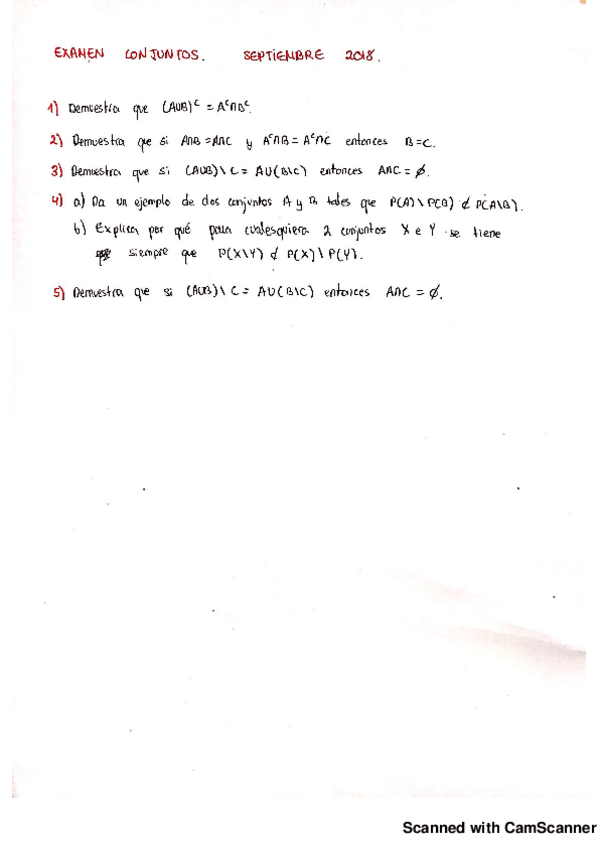 EXAMEN CONJUNTOS. SEPTIEMBRE 2018.
1) Demuestra que (A∪B)ᶜ = Aᶜ∩Bᶜ.
2) Demuestra que si A∩B = A∩C y Aᶜ∩B = Aᶜ∩C entonces B=C.
3) Demuestra que si (A∪B)\C = A∪(B\C) entonces A∩C = ∅.
4) a) Da un ejemplo de dos conjuntos A y B tales que P(A)\P(B) ⊄ P(A\B).
b) Explica por qué para cualesquiera 2 conjuntos X e Y se tiene
siempre que P(X\Y) ⊄ P(X)\P(Y).
5) Demuestra que si (A∪B)\C = A∪(B\C) entonces A∩C = ∅.
Scanned with CamScanner